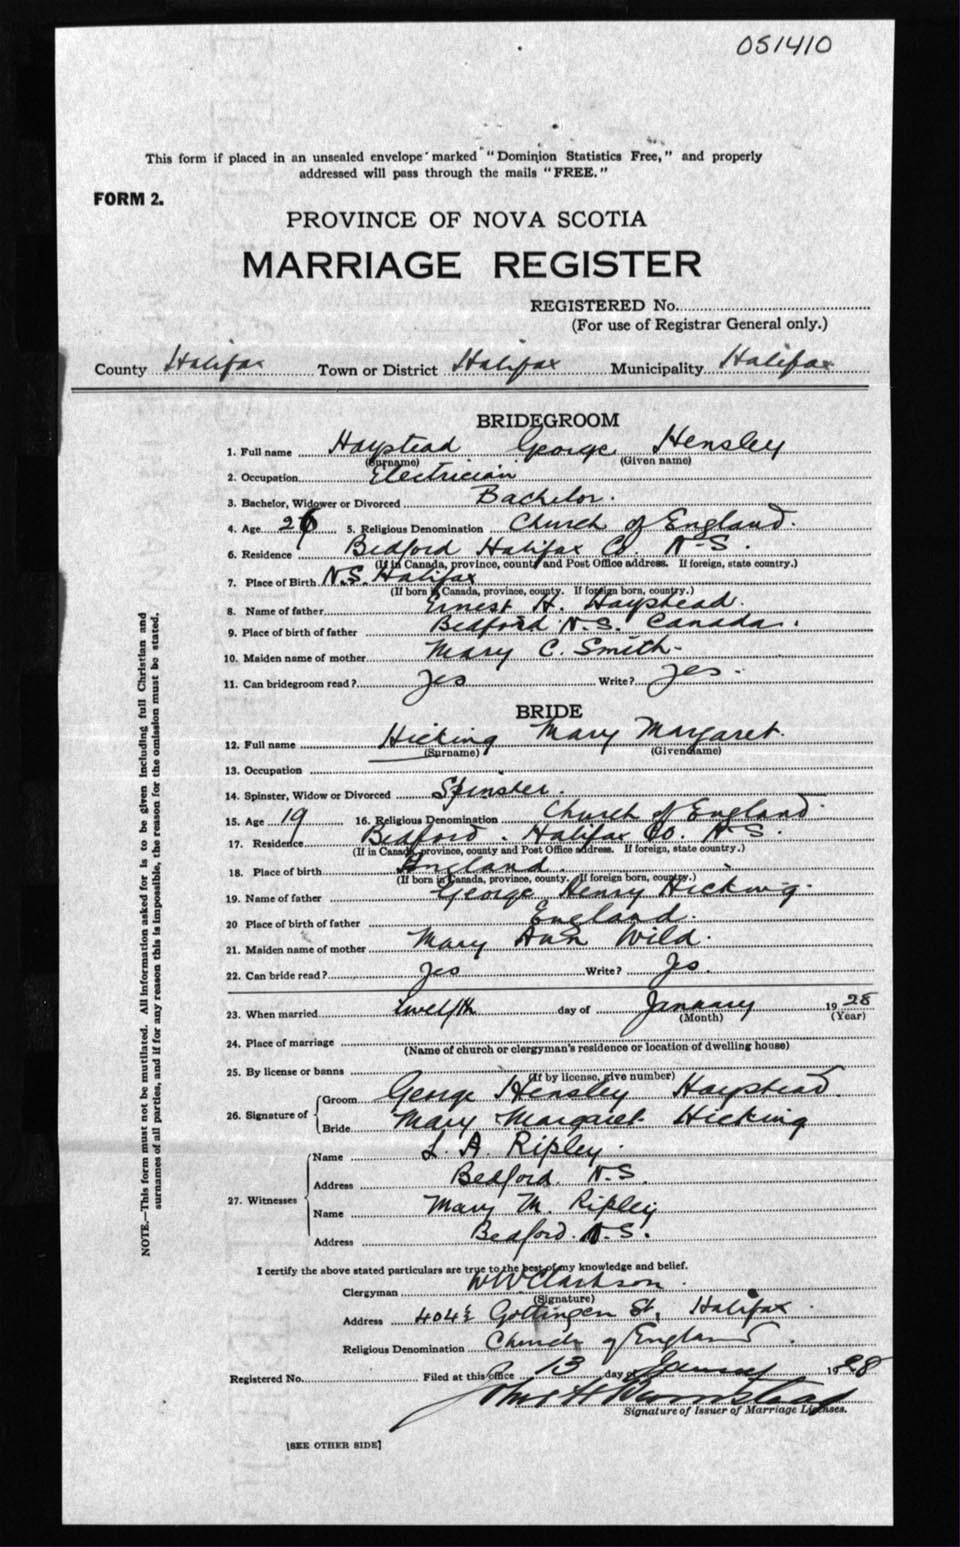 051410
This form if placed in an unsealed envelope marked "Dominion Statistics Free," and properly
addressed will pass through the mails "FREE."
FORM 2.
PROVINCE OF NOVA SCOTIA
MARRIAGE REGISTER
REGISTERED No.
(For use of Registrar General only.)
County Halifax Town or District Halifax Municipality Halifax
BRIDEGROOM
1. Full name Haystead George Hensley
(Surname) (Given name)
2. Occupation Electrician
3. Bachelor, Widower or Divorced Bachelor.
4. Age 26 5. Religious Denomination Church of England.
6. Residence Bedford Halifax Co. N-S.
(If in Canada, province, county and Post Office address. If foreign, state country.)
7. Place of Birth N.S. Halifax
(If born in Canada, province, county. If foreign born, country.)
8. Name of father Ernest H. Haystead.
9. Place of birth of father Bedford N.S. Canada.
10. Maiden name of mother Mary C. Smith-
11. Can bridegroom read? Yes Write? Yes-
BRIDE
12. Full name Hicking Mary Margaret.
(Surname) (Given name)
13. Occupation
14. Spinster, Widow or Divorced Spinster.
15. Age 19 16. Religious Denomination Church of England
17. Residence Bedford. Halifax Co. N-S.
(If in Canada, province, county and Post Office address. If foreign, state country.)
18. Place of birth England.
(If born in Canada, province, county. If foreign born, country.)
19. Name of father George Henry Hicking.
20 Place of birth of father England.
21. Maiden name of mother Mary Ann Wild.
22. Can bride read? Yes Write? Yes.
23. When married twelfth day of January 1928
(Month) (Year)
24. Place of marriage
(Name of church or clergyman's residence or location of dwelling house)
25. By license or banns
(If by license, give number)
26. Signature of Groom George Hensley Haystead.
Bride Mary Margaret Hicking
27. Witnesses Name L. A. Ripley.
Address Bedford. N.S.
Name Mary M. Ripley
Address Bedford. N.S.
I certify the above stated particulars are true to the best of my knowledge and belief.
Clergyman W W Clarkson.
(Signature)
Address 404½ Gottingen St, Halifax.
Religious Denomination Church of England.
Registered No. Filed at this office 13 day of January 1928
Signature of Issuer of Marriage Licenses.
[SEE OTHER SIDE]
NOTE.—This form must not be mutilated. All information asked for is to be given including full Christian and
surnames of all parties, and if for any reason this is impossible, the reason for the omission must be stated.